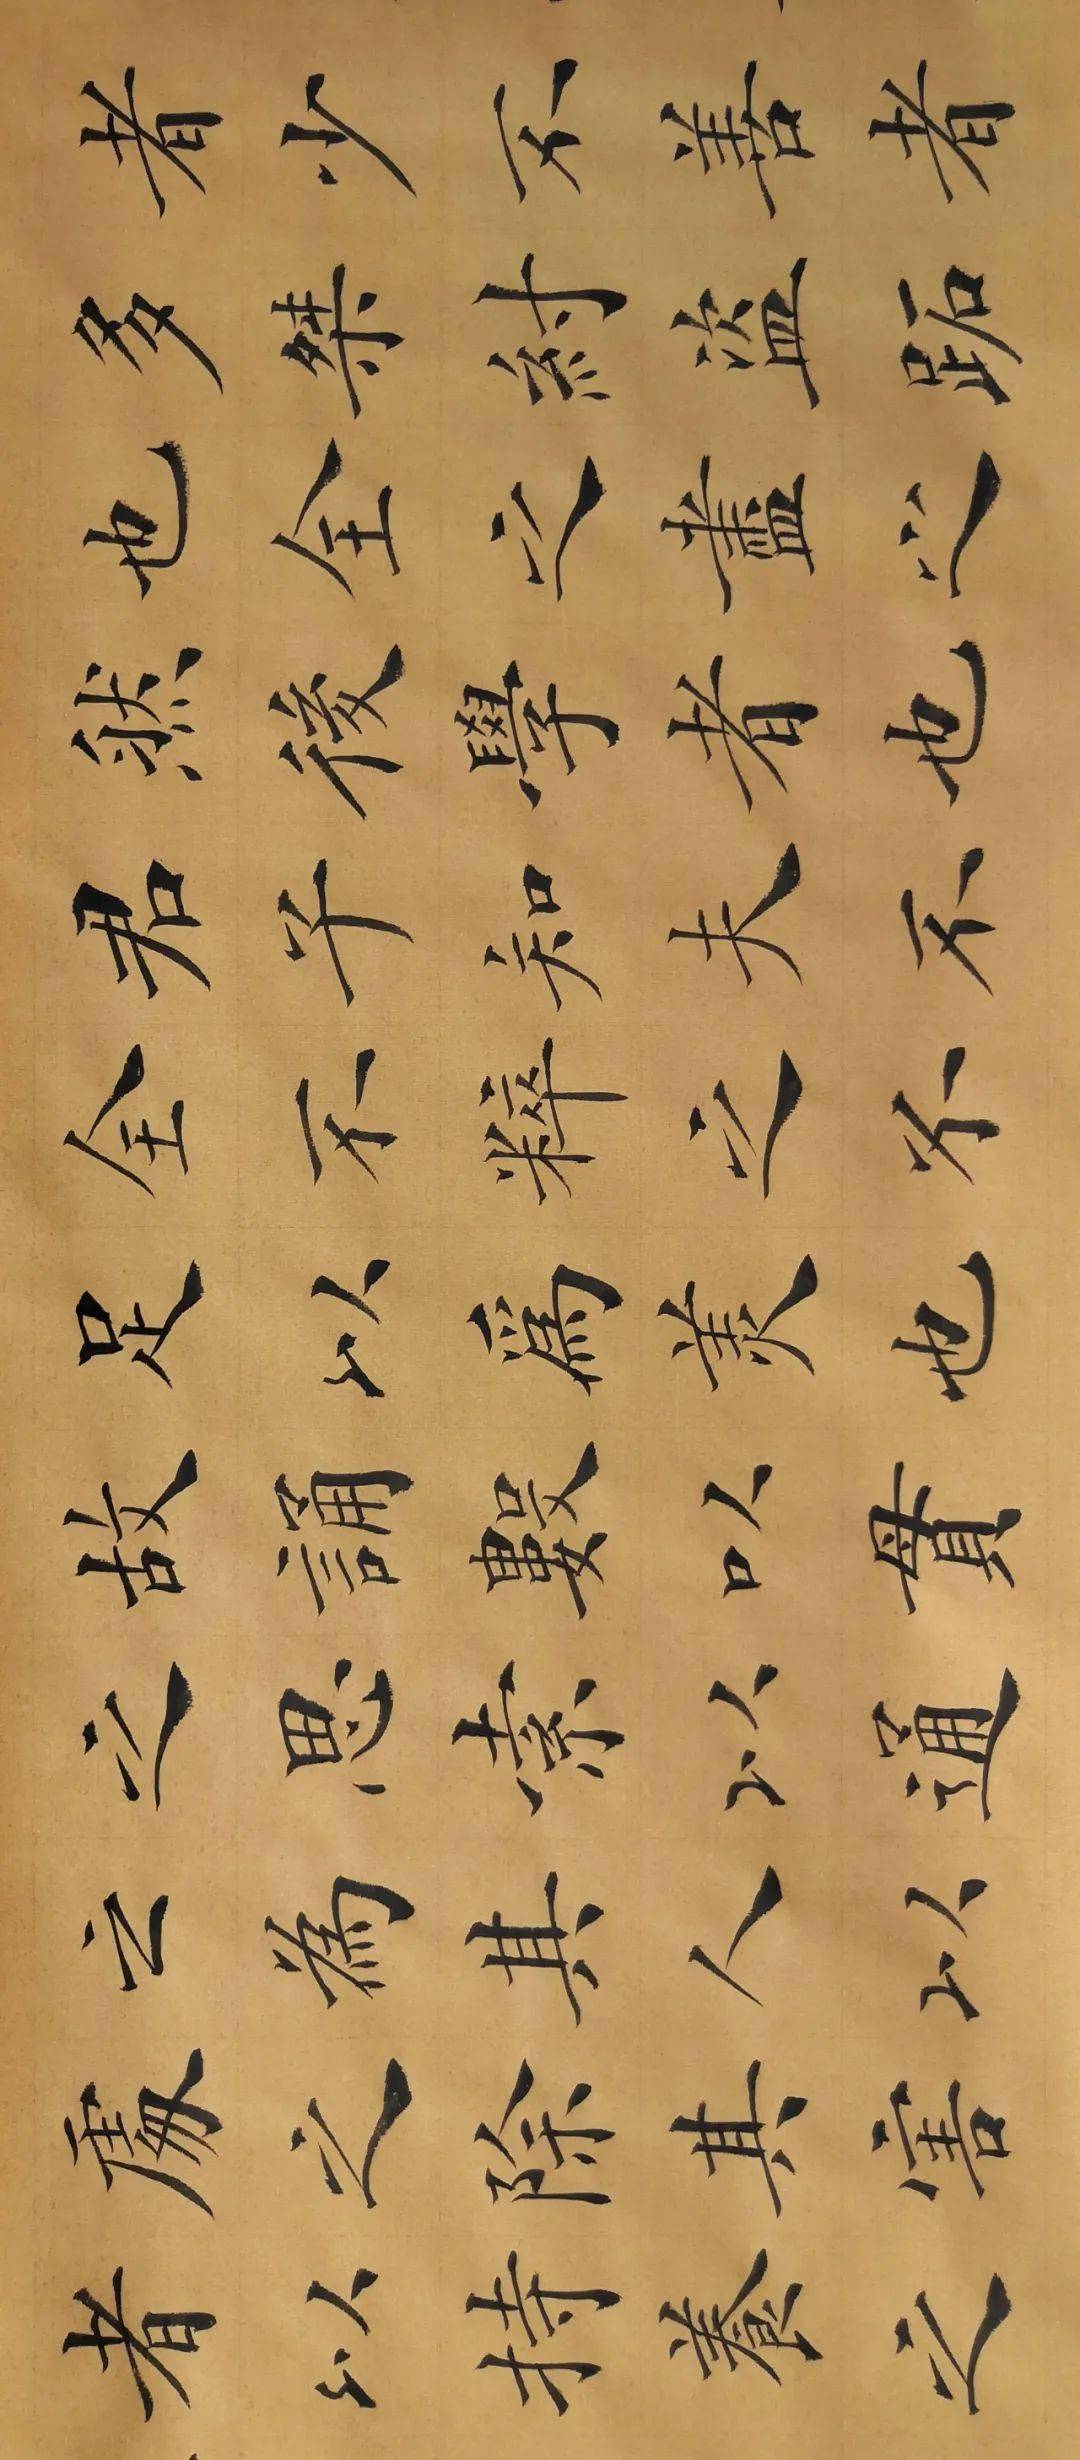 者少不善者
多桀紂盜跖
也全之盡之
然後學者也
君子知夫不
全不粹之不
足以為美也
故誦數以貫
之思索以通
之為其人以
處之除其害
者以持養之